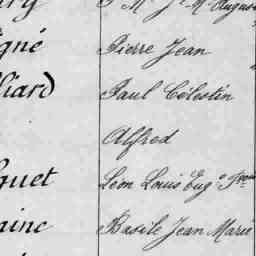 gné Pierre Jean
liard Paul Célestin
Alfred
guet Léon Louis Eug
aine Basile Jean Marie